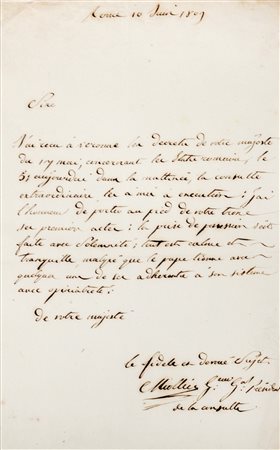 Rome 10 Juin 1809
Sire
J'ai reçu a verone les decrets de votre majesté
du 17 mai, concernant les états romains, le
aujourdhui dans la mattinée, la consulte
extraordinaire les a mis a execution: J'ai
l'honneur de porter au pied de votre trone
ses premiers actes: la prise de possession s'est
faite avec Solemnité; tout est calme et
tranquille malgré que le pape tienne avec
quelques uns de ses adherents a son sisteme
avec opiniatreté;
de votre majesté
le fidele et devoué Sujet
Miollis
de la consulte